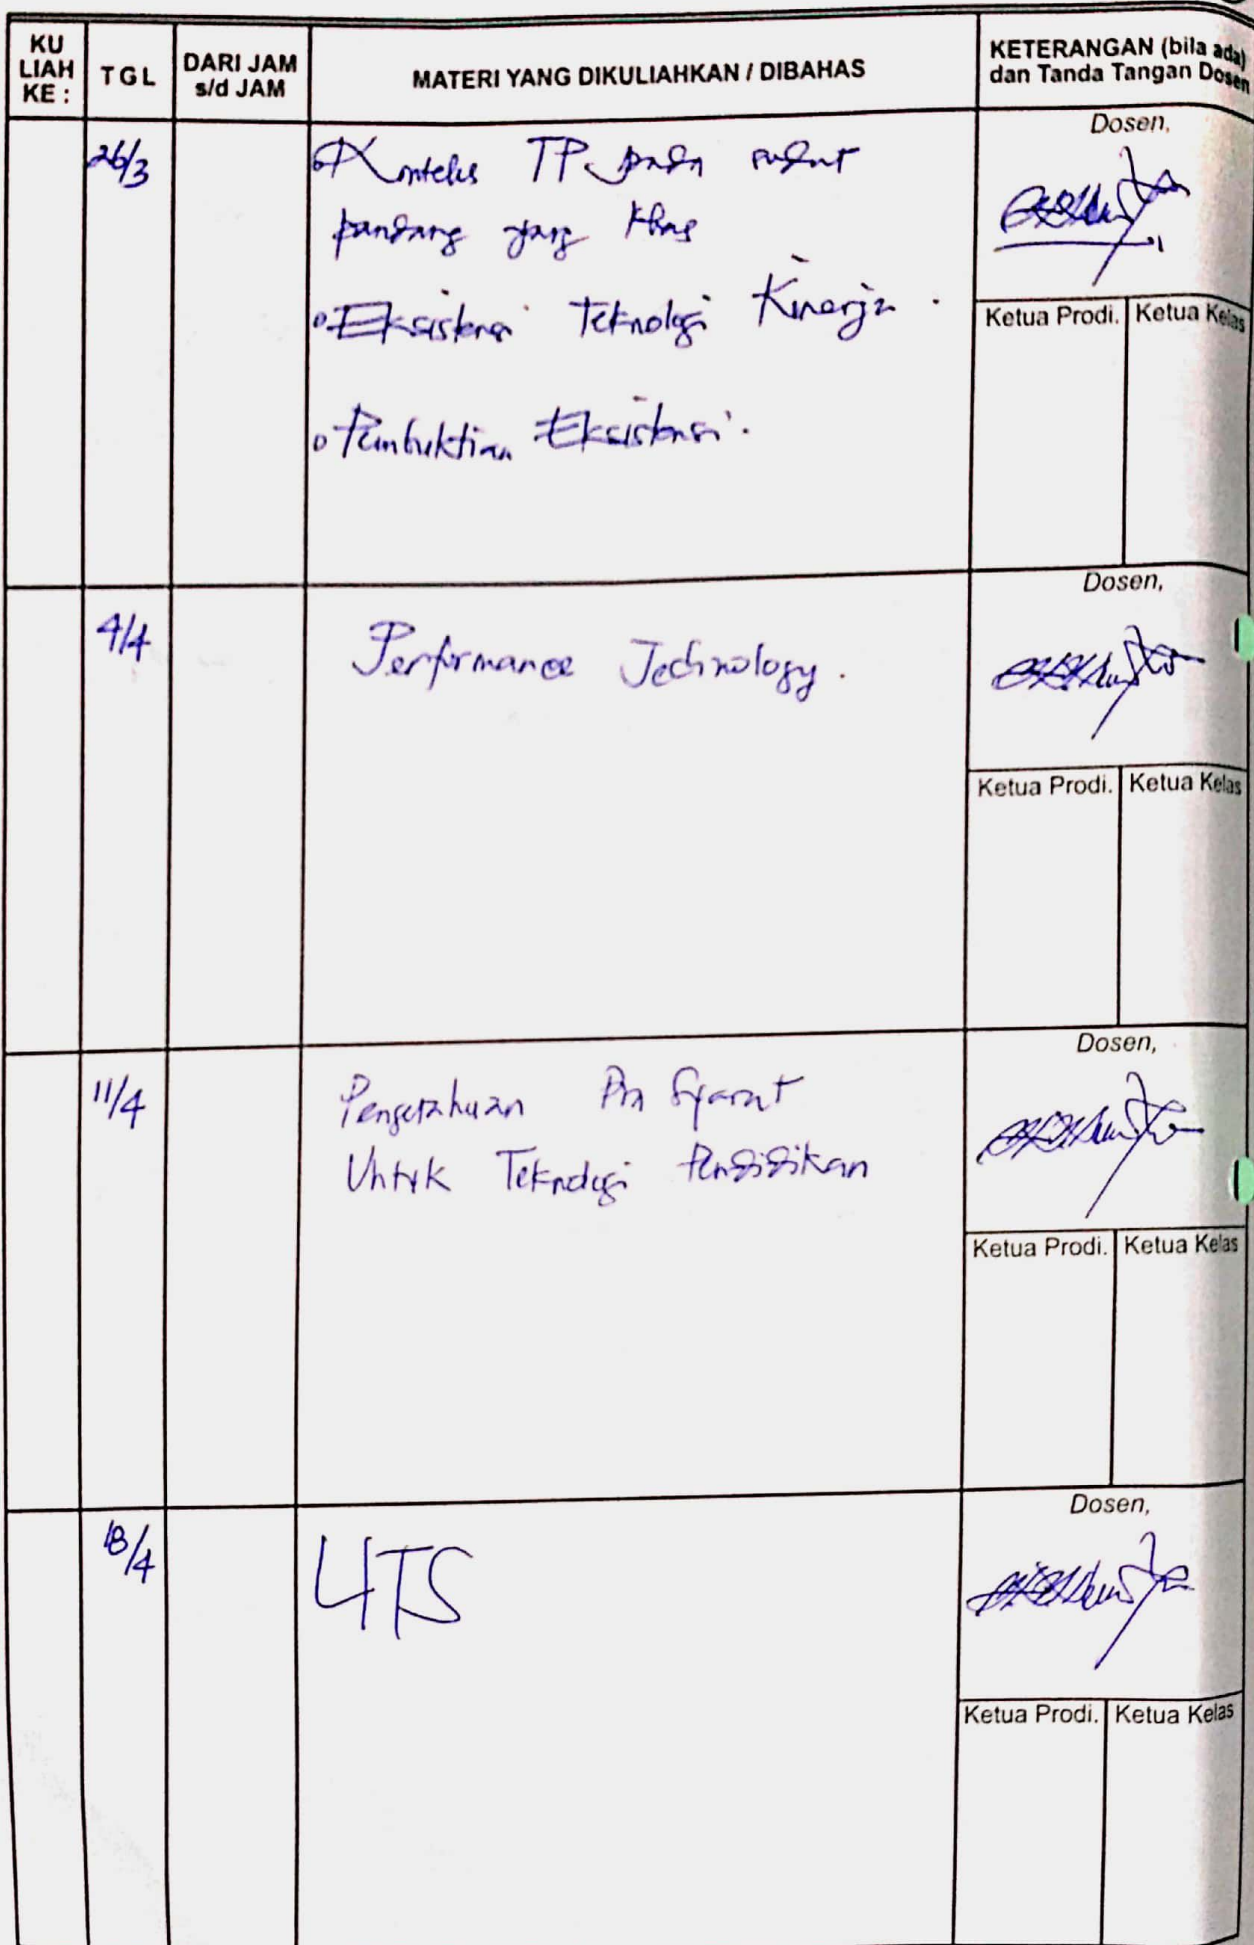 KU
LIAH
KE :
TGL
DARI JAM
s/d JAM
MATERI YANG DIKULIAHKAN / DIBAHAS
KETERANGAN (bila ada)
dan Tanda Tangan Dosen
26/3
Konteks TP pada sudut
pandang yang khas
Eksistensi Teknologi Kinerja .
Pembuktian Eksistensi .
Dosen,
Ketua Prodi. Ketua Kelas
4/4
Performance Technology .
Dosen,
Ketua Prodi. Ketua Kelas
11/4
Pengetahuan Pra Syarat
Untuk Teknologi Pendidikan
Dosen,
Ketua Prodi. Ketua Kelas
18/4
UTS
Dosen,
Ketua Prodi. Ketua Kelas